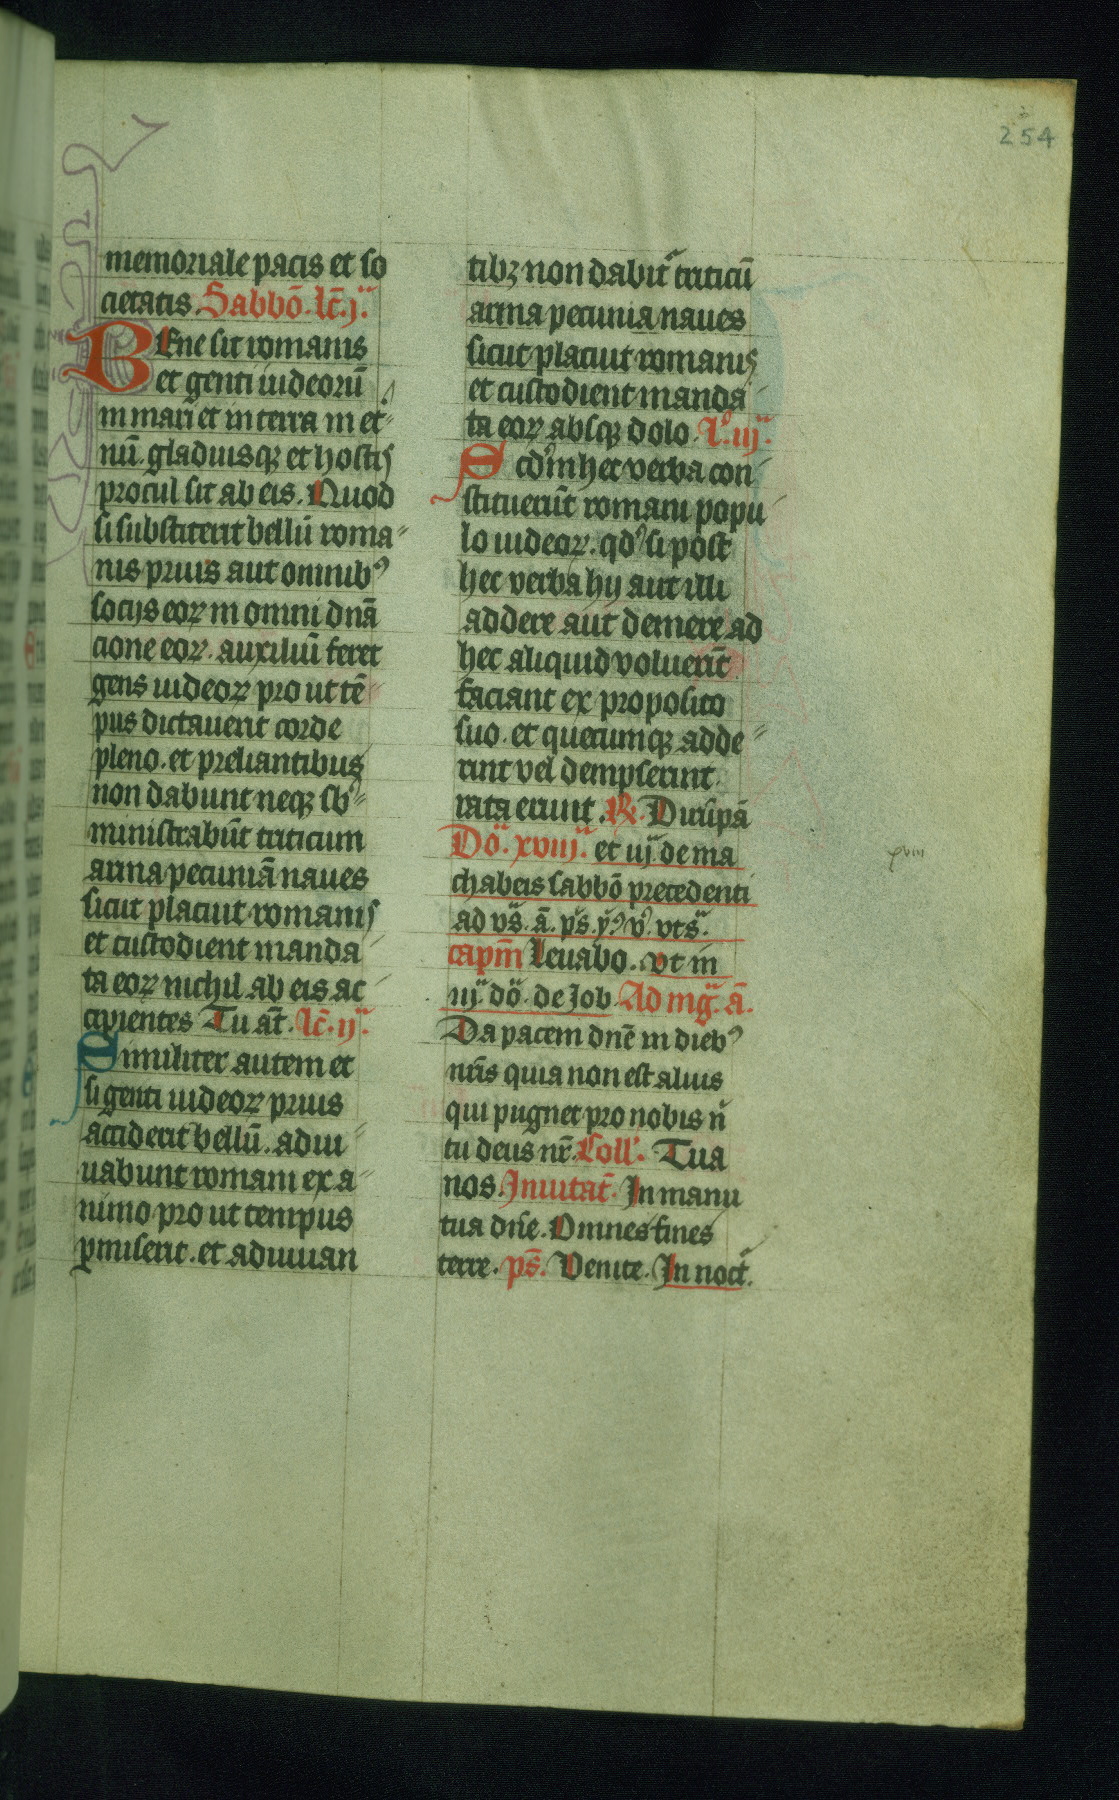 254
memoriale pacis et so
cietatis Sabbō. lc̄. j.ᵃ
BEne sit romanis
et genti iudeorū
in mari et in terra in et
nū. gladiusqꝫ et hostis
procul sit ab eis. Quod
si substiterit bellū roma
nis prius aut omnibꝰ
socijs eoꝝ in omni dnā
cione eoꝝ. auxiliū feret
gens iudeoꝝ pro ut tē
pus dictauerit corde
pleno. et preliantibus
non dabunt neqꝫ sb
ministrabūt triticum
arma pecuniā naues
sicut placuit romanis
et custodient manda
ta eoꝝ nichil ab eis ac
cipientes Tu aūt. lc̄. ij.ᵃ
Similiter autem et
si genti iudeoꝝ prius
acciderit bellū. adiu
uabunt romani ex a
nimo pro ut tempus
ꝑmiserit. et adiuuan
tibꝫ non dabit᷑ triticū
arma pecunia naues
sicut placuit romanis
et custodient manda
ta eoꝝ absqꝫ dolo. L.ᵒ iij.ᵃ
Scdm hec verba con
stituerūt romani popu
lo iudeoꝝ. qd si post
hec verba hij aut illi
addere aut demere ad
hec aliquid voluerīt
faciant ex proposito
suo. et quecumqꝫ adde
rint vel dempserint
rata erunt. ℟. Dirūpā
Dō. xviij.ᵃ et iij. de ma
xviii
chabeis sabbō precedenti
ad vs̄. ā. ps̄. ẏꝰ v̄. vts̄.
capm̄ Leuabo. vt in
iij.ᵃ dō. de Job. Ad mḡ. ā.
Da pacem dnē in diebꝰ
nr̄is quia non est alius
qui pugnet pro nobis n̄
tu deus nr̄. Coll. Tua
nos. Inuitat̄. In manu
tua dn̄e. Omnes fines
terre. ps̄. Venite. In noct̄.